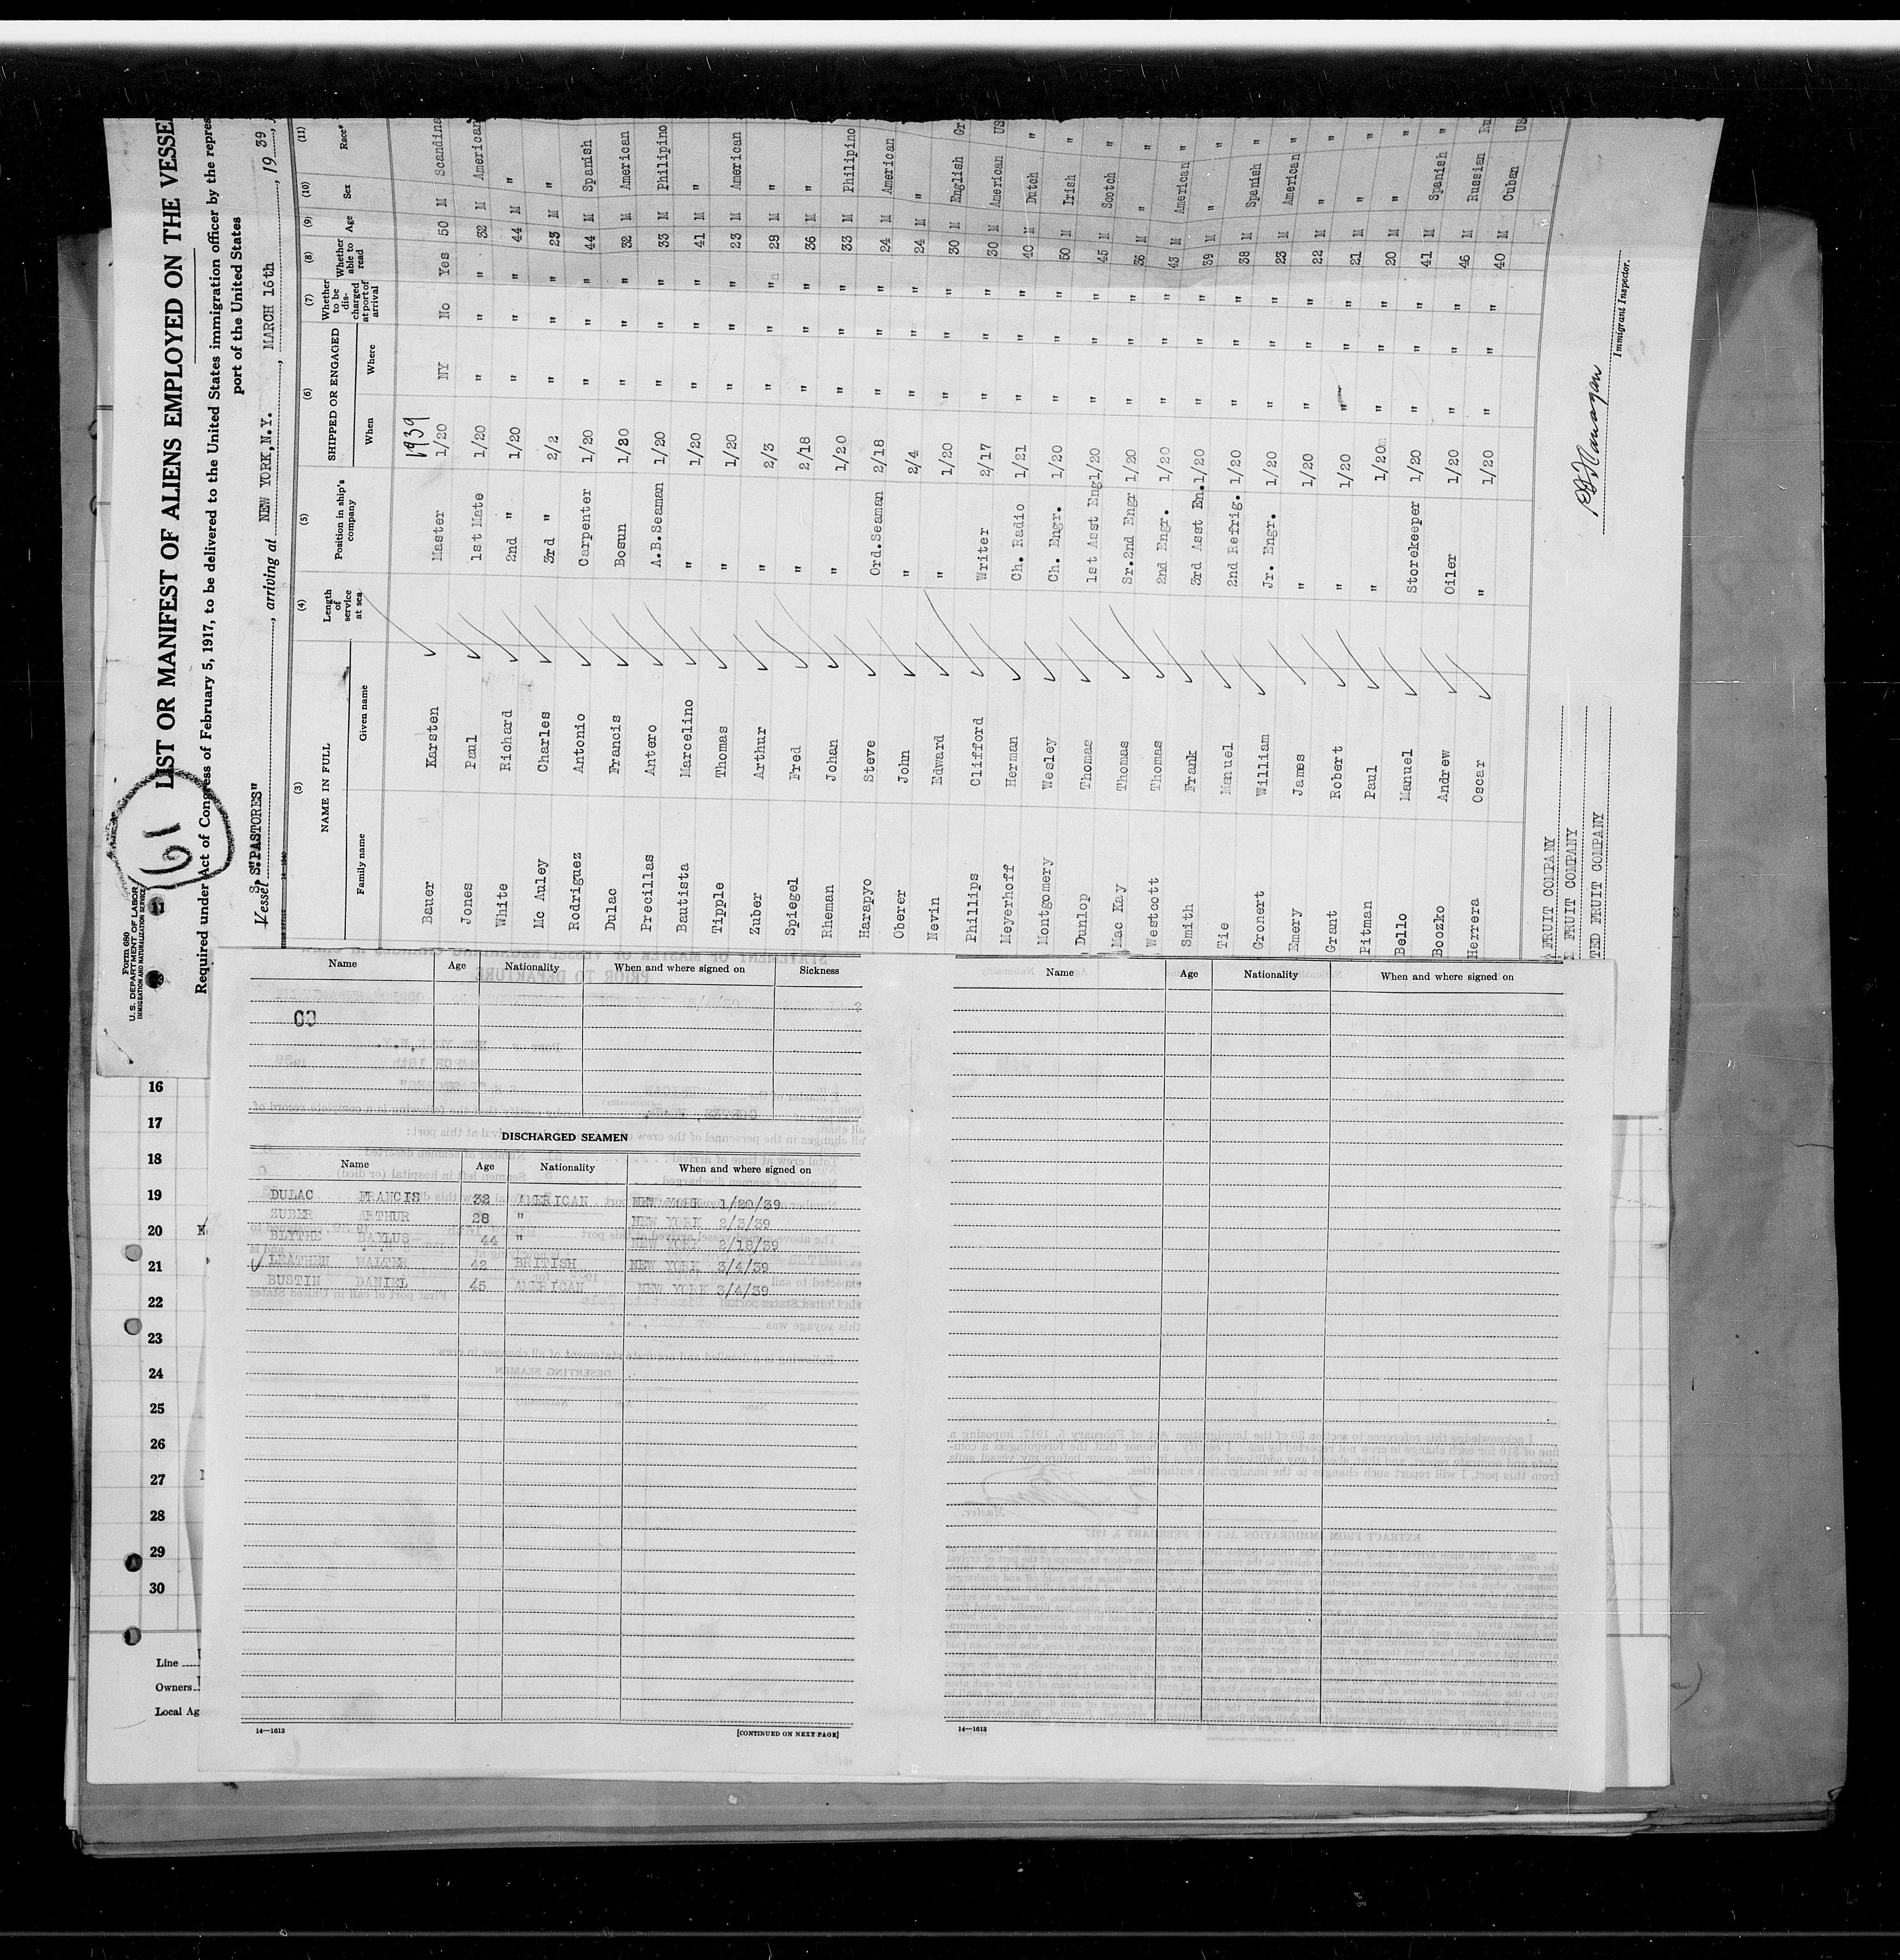 Form 680
U.S. DEPARTMENT OF LABOR
IMMIGRATION AND NATURALIZATION SERVICE
61
LIST OR MANIFEST OF ALIENS EMPLOYED ON THE VESSE
Required under Act of Congress of February 5, 1917, to be delivered to the United States immigration officer by the repres
port of the United States
Vessel S. S."PASTORES", arriving at NEW YORK, N.Y., MARCH 16th, 1939,
(3) (4) (5) (6) (7) (8) (9) (10) (11)
NAME IN FULL Length of service at sea Position in ship's company SHIPPED OR ENGAGED Whether to be discharged at port of arrival Whether able to read Age Sex Race*
Family name Given name When Where
1939
Bauer Karsten Master 1/20 NY No Yes 50 M Scandina
Jones Paul 1st Mate 1/20 " " " 32 M American
White Richard 2nd " 1/20 " " " 44 M "
Mc Auley Charles 3rd " 2/2 " " " 23 M "
Rodriguez Antonio Carpenter 1/20 " " " 44 M Spanish
Dulac Francis Bosun 1/20 " " " 32 M American
Precillas Antero A.B.Seaman 1/20 " " " 33 M Philipino
Bautista Marcelino " 1/20 " " " 41 M "
Tipple Thomas " 1/20 " " " 23 M American
Zuber Arthur " 2/3 " " " 28 M "
Spiegel Fred " 2/18 " " " 36 M "
Rheman Johan " 1/20 " " " 33 M Philipino
Harapyo Steve Ord.Seaman 2/18 " " " 24 M American
Oberer John " 2/4 " " " 24 M "
Nevin Edward " 1/20 " " " 30 M English Gr
Phillips Clifford Writer 2/17 " " " 30 M American US
Meyerhoff Herman Ch. Radio 1/21 " " " 40 M Dutch "
Montgomery Wesley Ch. Engr. 1/20 " " " 50 M Irish "
Dunlop Thomas 1st Asst Eng 1/20 " " " 45 M Scotch "
Mac Kay Thomas Sr.2nd Engr 1/20 " " " 36 M " "
Westcott Thomas 2nd Engr. 1/20 " " " 43 M American "
Smith Frank 3rd Asst En. 1/20 " " " 39 M " "
Tie Manuel 2nd Refrig. 1/20 " " " 38 M Spanish "
Gronert William Jr. Engr. 1/20 " " " 23 M American "
Emery James " 1/20 " " " 22 M " "
Grant Robert " 1/20 " " " 21 M " "
Pitman Paul " 1/20 " " " 20 M " "
Bello Manuel Storekeeper 1/20 " " " 41 M Spanish "
Boozko Andrew Oiler 1/20 " " " 46 M Russian Ru
Herrera Oscar " 1/20 " " " 40 M Cuban US
FRUIT COMPANY
FRUIT COMPANY
TED FRUIT COMPANY
Immigrant Inspector.
Name Age Nationality When and where signed on Sickness
DISCHARGED SEAMEN
Name Age Nationality When and where signed on
DULAC FRANCIS 32 AMERICAN NEW YORK 1/20/39
ZUBER ARTHUR 28 " NEW YORK 2/3/39
BLYTHE BAYLUS 44 " NEW YORK 2/18/39
LEATHEN WALTER 42 BRITISH NEW YORK 3/4/39
BUSTIN DANIEL 45 AMERICAN NEW YORK 3/4/39
14—1613 [CONTINUED ON NEXT PAGE]
Name Age Nationality When and where signed on
14—1613
16
17
18
19
20
21
22
23
24
25
26
27
28
29
30
Line
Owners
Local Ag